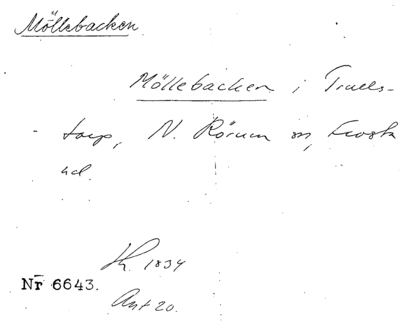 Möllebacken
Möllebacken i Truels-
torp, N. Rörum sn, Frosta
hd.
Lk. 1834
Nr 6643.
Akt 20.